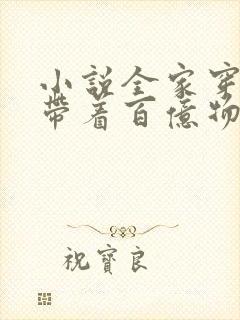 小說全家穿
帶着百億物
祝寶良